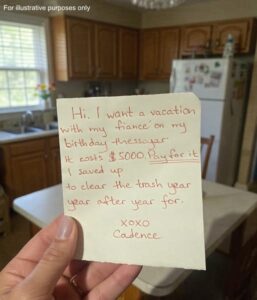 For illustrative purposes only
Hi. I want a vacation
with my fiance on my
birthday this year
it costs $5000. Pay for it
I saved up
to clear the trash year
year after year for.
xoxo
Cadence